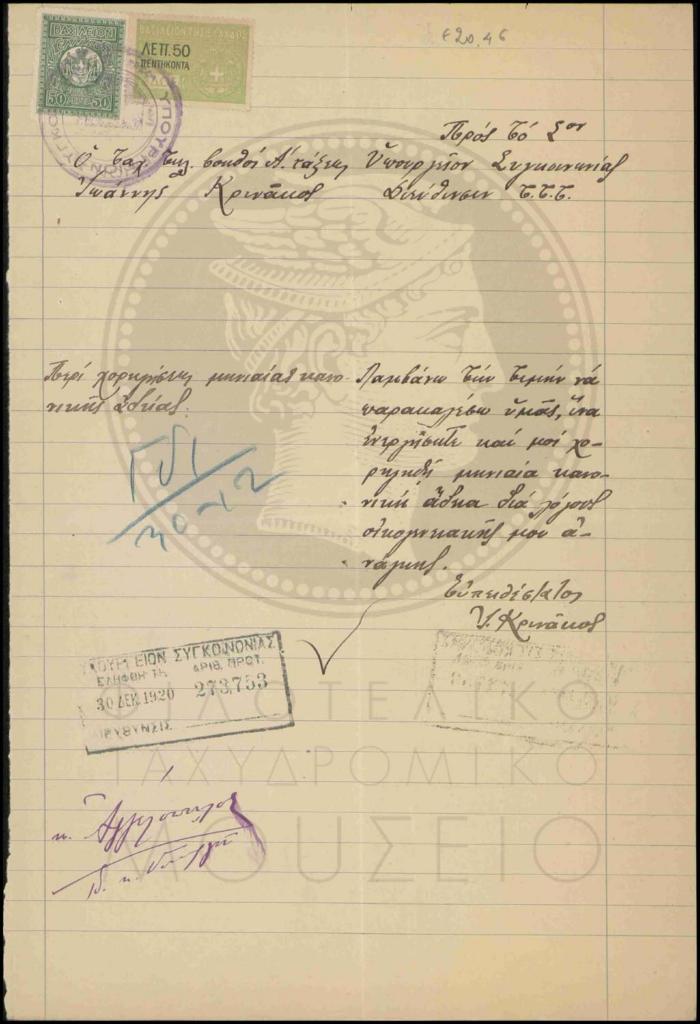 620,46
ΒΑΣΙΛΕΙΟΝ
50 50
ΒΑΣΙΛΕΙΟΝ ΤΗΣ ΕΛΛΑΔΟΣ
ΛΕΠ. 50
ΠΕΝΤΗΚΟΝΤΑ
Πρὸς τὸ Σον
Ὁ ταχ. τηλ. βοηθὸς Α΄ τάξεως
Ἰωάννης Κρινᾶκος
Ὑπουργεῖον Συγκοινωνίας
Διεύθυνσιν Τ.Τ.Τ.
Περὶ χορηγήσεως μηνιαίας κανο-
νικῆς ἀδείας.
Λαμβάνω τὴν τιμὴν νὰ
παρακαλέσω ὑμᾶς, ἵνα
ἐνεργήσητε καὶ μοὶ χο-
ρηγηθῇ μηνιαία κανο-
νικὴ ἄδεια διὰ λόγους
οἰκογενειακῆς μου ἀ-
νάγκης.
Εὐπειθέστατος
Ἰ. Κρινᾶκος
30-12
ΥΠΟΥΡΓΕΙΟΝ ΣΥΓΚΟΙΝΩΝΙΑΣ
ΕΛΗΦΘΗ ΤΗ ΑΡΙΘ. ΠΡΩΤ.
30 ΔΕΚ 1920 273,753
ΔΙΕΥΘΥΝΣΙΣ
κ. Ἀγγελόπουλος
ΦΙΛΟΤΕΛΙΚΟ
ΤΑΧΥΔΡΟΜΙΚΟ
ΜΟΥΣΕΙΟ